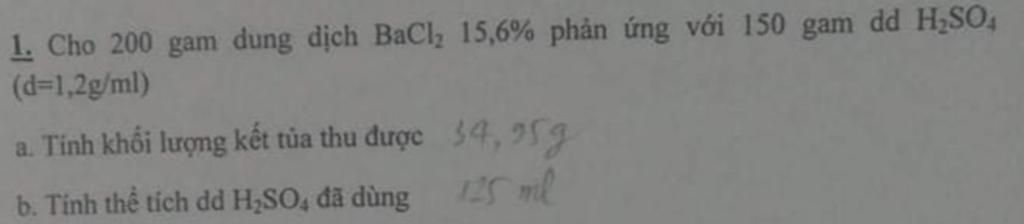 1. Cho 200 gam dung dịch BaCl₂ 15,6% phản ứng với 150 gam dd H₂SO₄
(d=1,2g/ml)
a. Tính khối lượng kết tủa thu được 34,95g
b. Tính thể tích dd H₂SO₄ đã dùng 125 ml